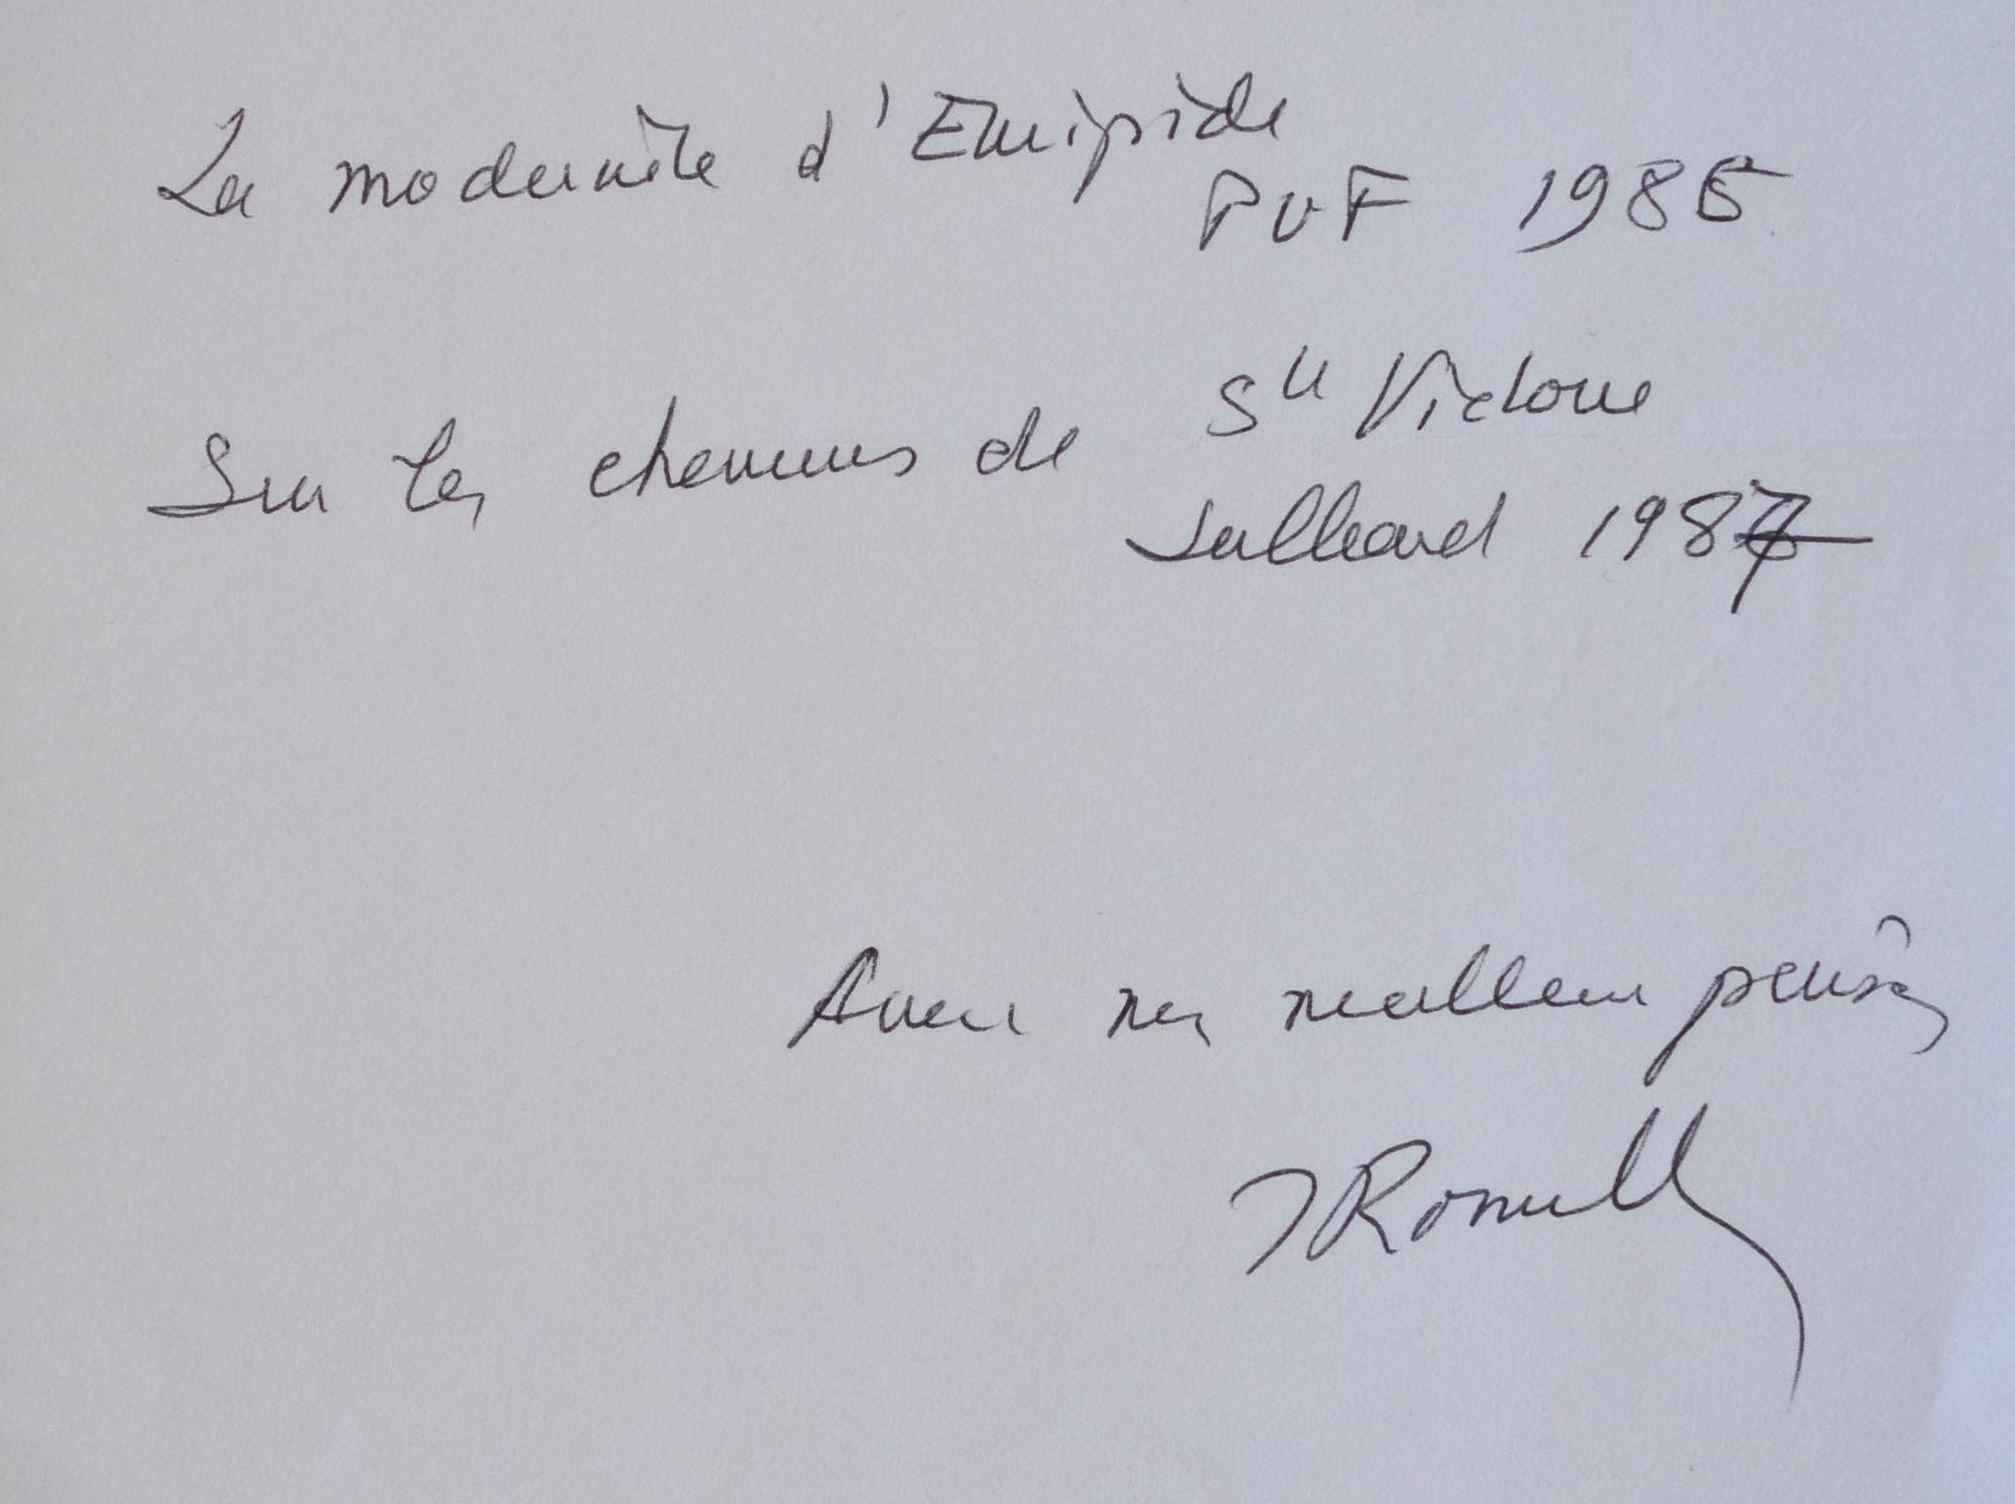 La modernité d'Euripide
PUF 1986
Sur les chemins de Ste Victoire
Julliard 1987
Avec mes meilleures pensées
JRomilly